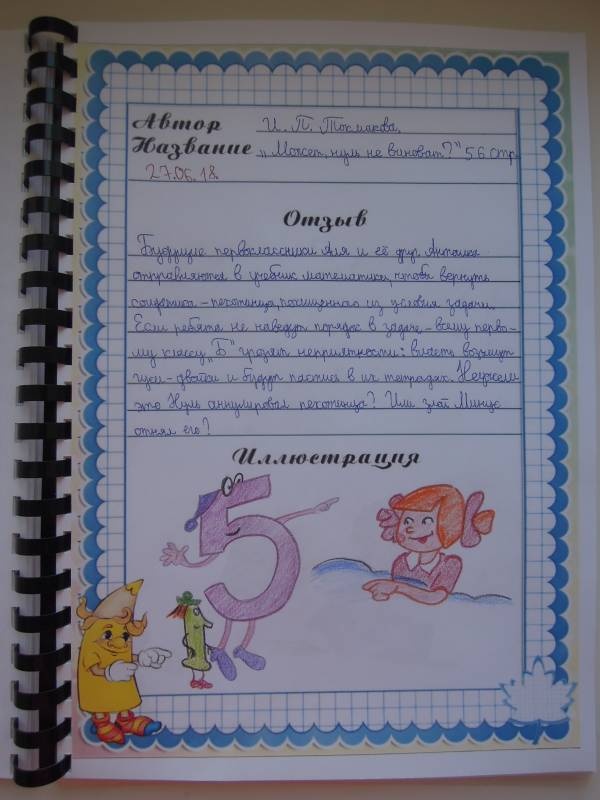 Автор И. П. Токмакова.
Название „Может, нуль не виноват?" 56 стр.
27.06.18.
Отзыв
Будущие первоклассники Аля и её друг Антошка
отправляются в учебник математики, чтобы вернуть
солдатика-пехотинца, похищенного из условия задачи.
Если ребята не наведут порядок в задаче - всему перво-
му классу „Б" грозят неприятности: вместо возьмут
гуси-двойки и будут пастись в их тетрадях. Неужели
это Нуль аннулировал пехотинца? Или злой Минус
отнял его?
Иллюстрация
5
1